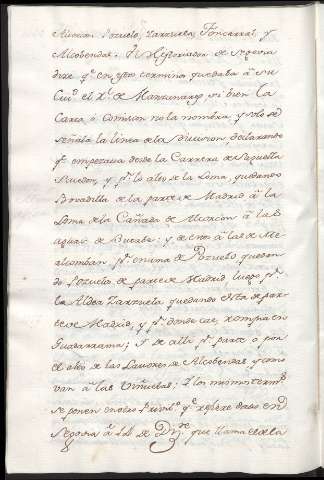 Alarcon Pozuelo, Zarzuela, Foncarral, y
Alcobendas. El Historiador de Segovia
dize qe. en este termino quedaba â su
Ciud. el Rl. de Manzanares, si bien la
Carta, ô Comision no la nombra, y solo se
señala la linea de la division, declarando
qe. empezava desde la Carrera de
y pr. lo alto de la Loma, quedando
Bobadilla de la parte de Madrid â la
Loma de la Cañada de Alarcon â las
aguas de Butarbe; y de otro â las de Me-
alcomban, pr. encima de Pozuelo quedan-
do Pozuelo de parte de Madrid, luego pr.
la Aldea Zarzuela quedando esta de par-
te de Madrid, y pr. donde cae,
Guadarrama; y de alli pr. parte o pon
el alto de las Lavores de Alcobendas, y como
van â las Viñuelas; y los mismos term.
se ponen en otro Privilo. qe. refiere dado en
Segovia â 12 de Dizre. que llama el de la